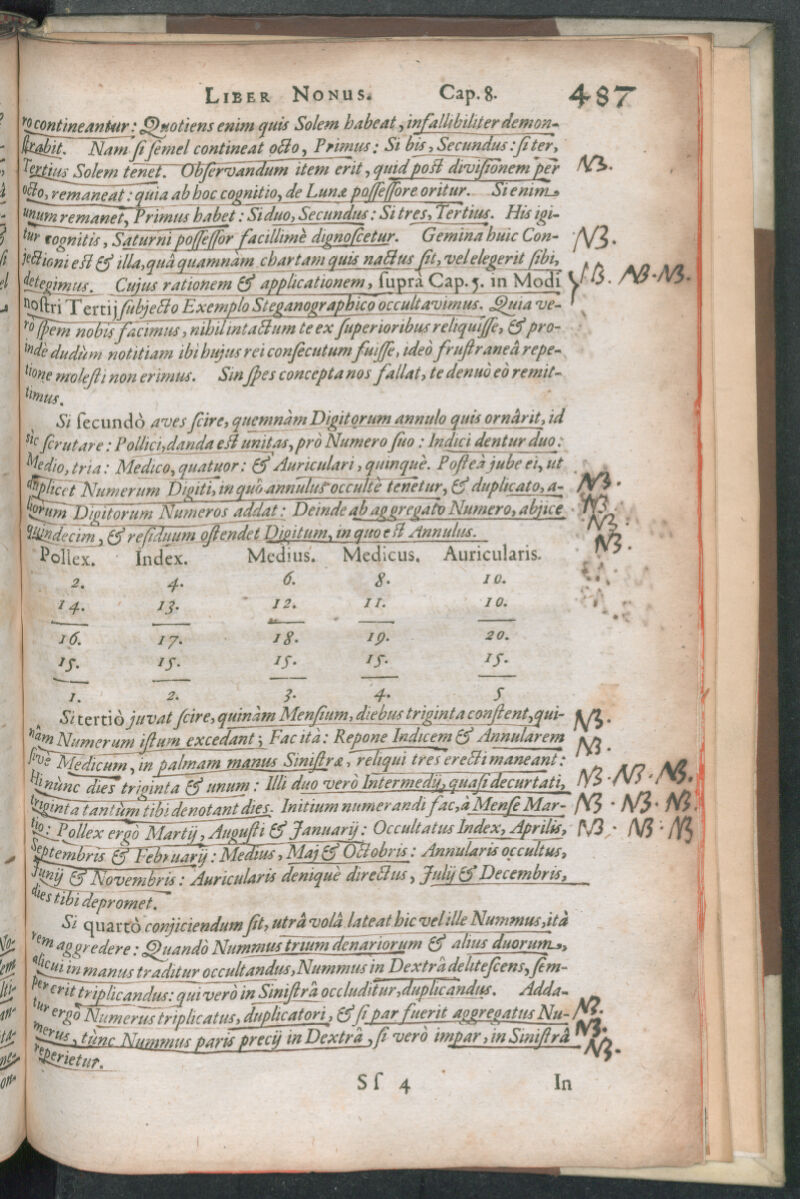 LIBER NONUS. Cap. 8. 487
ro contineantur: Quotiens enim quis Solem habeat, infallibiliter demon-
strabit. Nam si semel contineat octo, Primus: Si bis, Secundus: si ter,
Tertius Solem tenet. Observandum item erit, quid post divisionem per
octo, remaneat: quia ab hoc cognitio, de Lunæ possessore oritur. Si enim
unum remanet, Primus habet: Si duo, Secundus: Si tres, Tertius. His igi-
tur cognitis, Saturni possessor facillimè dignoscetur. Gemina huic Con-
jectioni est & illa, quâ quamnam chartam quis nactus sit, vel elegerit sibi,
detegimus. Cujus rationem & applicationem, suprà Cap. 5. in Modi
nostri Tertij subjecto Exemplo Steganographico occultavimus. Quia ve-
rò spem nobis facimus, nihil intactum te ex superioribus reliquisse, & pro-
indè dudùm notitiam ibi hujus rei consecutum fuisse, ideò frustraneâ repe-
titione molesti non erimus. Sin spes concepta nos fallat, te denuò eò remit-
timus.
Si secundò aves scire, quemnàm Digitorum annulo quis ornârit, id
sic scrutare: Pollici, danda est unitas, prò Numero suo: Indici dentur duo:
Medio, tria: Medico, quatuor: & Auriculari, quinquè. Posteà jube ei, ut
duplicet Numerum Digiti, in quô annulus occultè tenetur, & duplicato, a-
liorum Digitorum Numeros addat: Deinde ab aggregato Numero, abjice
quindecim, & residuum ostendet Digitum, in quo est Annulus.
Pollex. Index. Medius. Medicus. Auricularis.
2. 4. 6. 8. 10.
14. 13. 12. 11. 10.
16. 17. 18. 19. 20.
15. 15. 15. 15. 15.
1. 2. 3. 4. 5
Si tertiò juvat scire, quinàm Mensium, diebus triginta constent, qui-
nàm Numerum istum excedant; Fac ità: Repone Indicem & Annularem
sivè Medicum, in palmam manus Sinistræ, reliqui tres erecti maneant:
Hi nùnc dies triginta & unum: Illi duo verò Intermedij, quasi decurtati,
triginta tantùm tibi denotant dies. Initium numerandi fac, à Mense Mar-
tio: Pollex ergò Martij, Augusti & Januarij: Occultatus Index, Aprilis,
Septembris & Februarij: Medius, Maj & Octobris: Annularis occultus,
Junij & Novembris: Auricularis deniquè directus, Julij & Decembris,
dies tibi depromet.
Si quartò conjiciendum sit, utrâ volâ lateat hic vel ille Nummus, ità
rem aggredere: Quandò Nummus trium denariorum & alius duorum,
alicui in manus traditur occultandus, Nummus in Dextrâ delitescens, sem-
per erit triplicandus: qui verò in Sinistrâ occluditur, duplicandus. Adda-
tur ergò Numerus triplicatus, duplicatori, & si par fuerit aggregatus Nu-
merus, tùnc Nummus paris precij in Dextrâ, si verò impar, in Sinistrâ
reperietur.
Sſ 4 In
NB.
NB.
NB. NB. NB.
NB.
NB.
NB.
NB.
NB.
NB.
NB. NB. NB.
NB. NB. NB.
NB. NB. NB
NB.
NB.
NB.